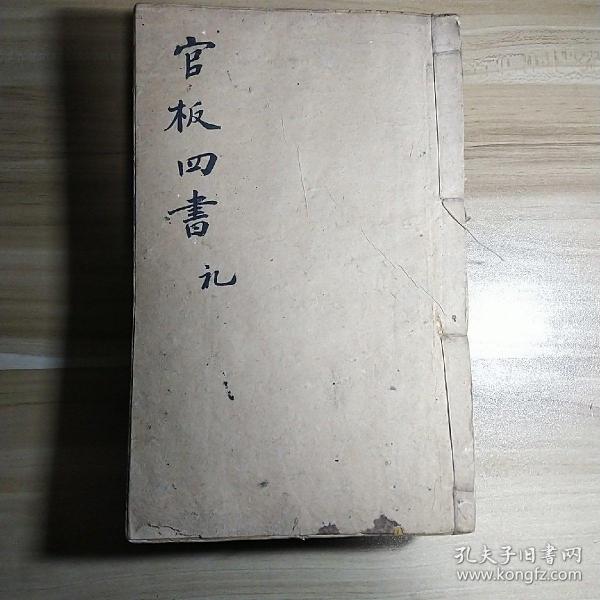 官板四書
礼
孔夫子旧書网
www.kongfz.com